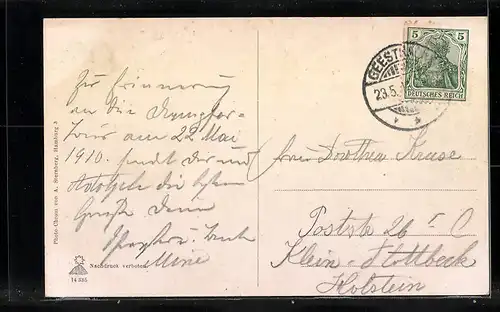 Zur Erinnerung
an die Dampfer-
Tour am 22 Mai
1910. sendet dir und
Adolph die besten
Grüße deine
Tante
Mine
Frau Dorothea Kruse
Poststr 26 I C
Klein-Flottbeck
Holstein
GEESTH
23.5.
5 5
DEUTSCHES REICH
Photo-Chrom von A. Sternberg, Hamburg 3
Nachdruck verboten.
14 335